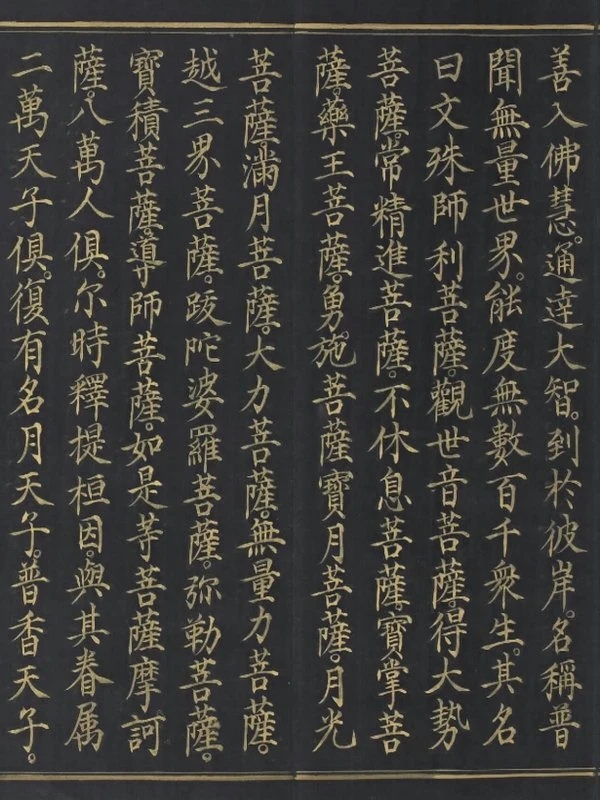 善入佛慧。通達大智。到於彼岸。名稱普
聞無量世界。能度無數百千衆生。其名
曰文殊師利菩薩。觀世音菩薩。得大勢
菩薩。常精進菩薩。不休息菩薩。寶掌菩
薩。藥王菩薩。勇施菩薩寶月菩薩。月光
菩薩。滿月菩薩。大力菩薩。無量力菩薩。
越三界菩薩。跋陀婆羅菩薩。弥勒菩薩。
寶積菩薩。導師菩薩。如是等菩薩摩訶
薩。八萬人俱。尔時釋提桓因。與其眷属
二萬天子俱。復有名月天子。普香天子。